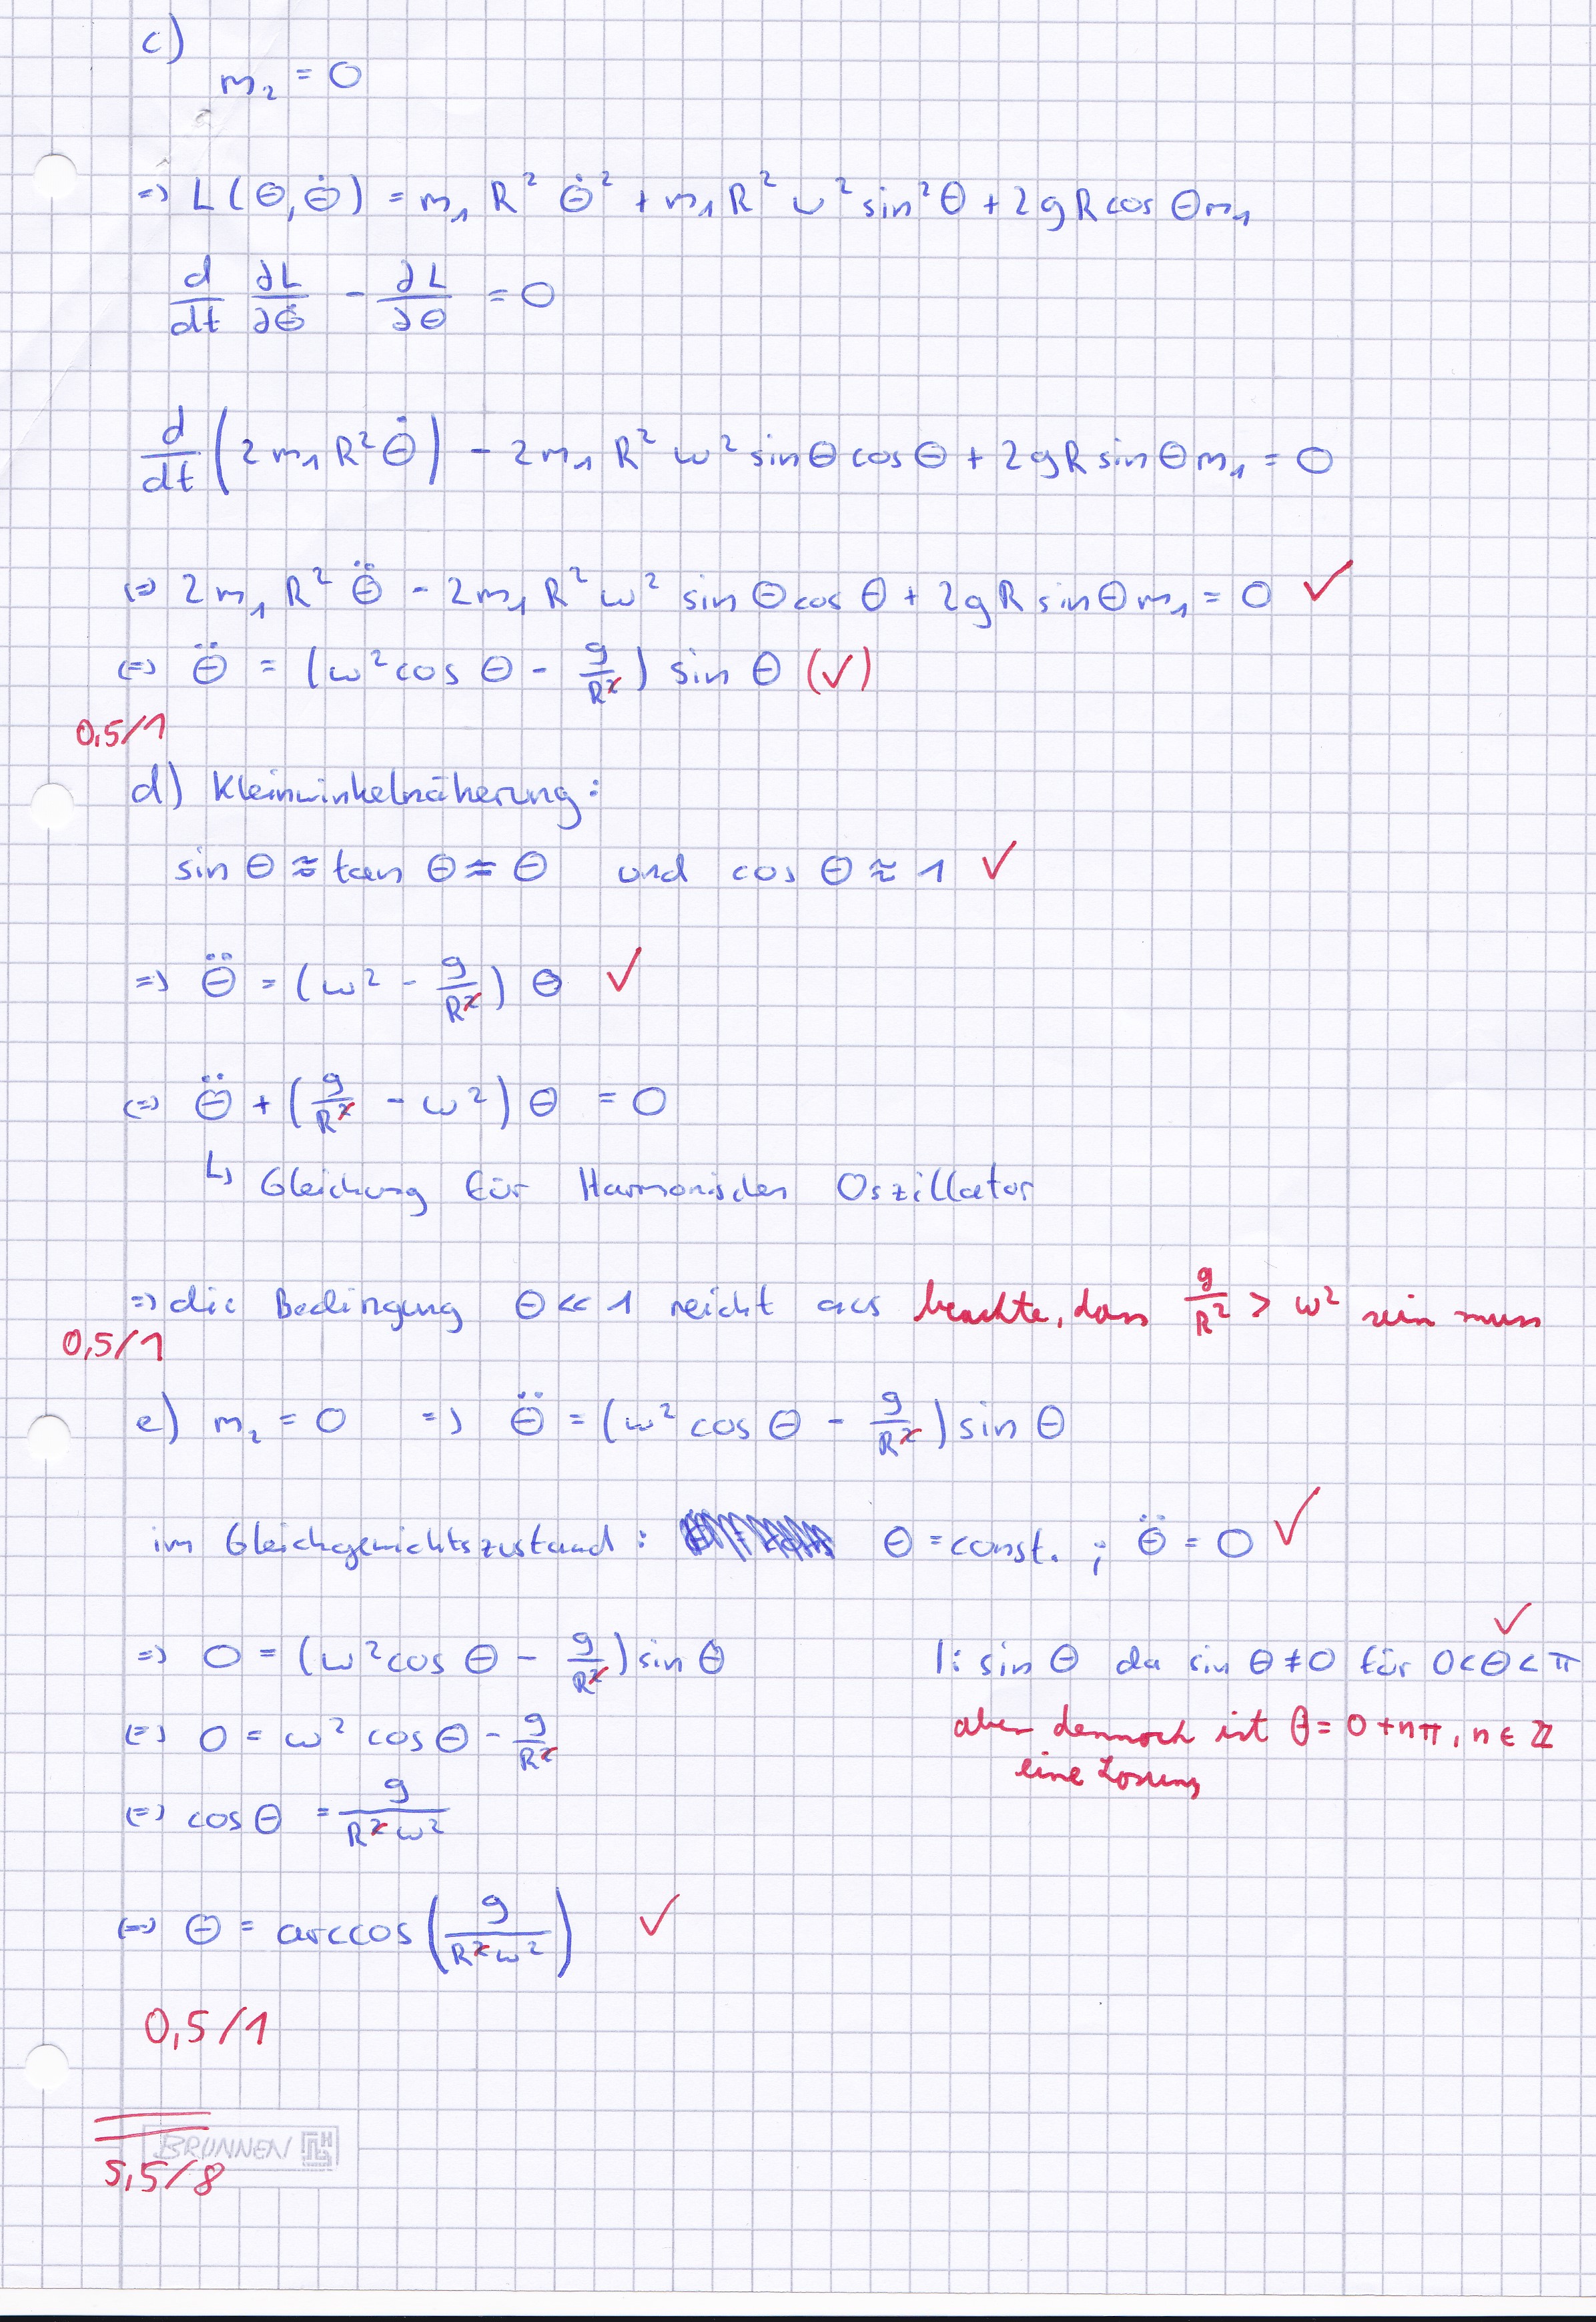 c)
m₂ = 0
=> L(Θ, Θ̇) = m₁ R² Θ̇² + m₁ R² ω² sin²Θ + 2gR cos Θ m₁
d/dt ∂L/∂Θ̇ - ∂L/∂Θ = 0
d/dt (2 m₁ R² Θ̇) - 2 m₁ R² ω² sin Θ cos Θ + 2gR sin Θ m₁ = 0
<=> 2 m₁ R² Θ̈ - 2 m₁ R² ω² sin Θ cos Θ + 2gR sin Θ m₁ = 0 ✓
<=> Θ̈ = (ω² cos Θ - g/R²) sin Θ (✓)
0,5/1
d) Kleinwinkelnäherung:
sin Θ ≈ tan Θ ≈ Θ und cos Θ ≈ 1 ✓
=> Θ̈ = (ω² - g/R²) Θ ✓
<=> Θ̈ + (g/R² - ω²) Θ = 0
↳ Gleichung für Harmonischen Oszillator
=> die Bedingung Θ << 1 reicht aus beachte, dass g/R² > ω² sein muss
0,5/1
e) m₂ = 0 => Θ̈ = (ω² cos Θ - g/R²) sin Θ
im Gleichgewichtszustand: Θ = const. ; Θ̈ = 0 ✓
=> 0 = (ω² cos Θ - g/R²) sin Θ |: sin Θ da sin Θ ≠ 0 für 0 < Θ < π ✓
aber dennoch ist θ = 0 + nπ, n ∈ ℤ
eine Lösung
<=> 0 = ω² cos Θ - g/R²
<=> cos Θ = g/(R² ω²)
<=> Θ = arccos (g/(R² ω²)) ✓
0,5/1
BRUNNEN
5,5/8